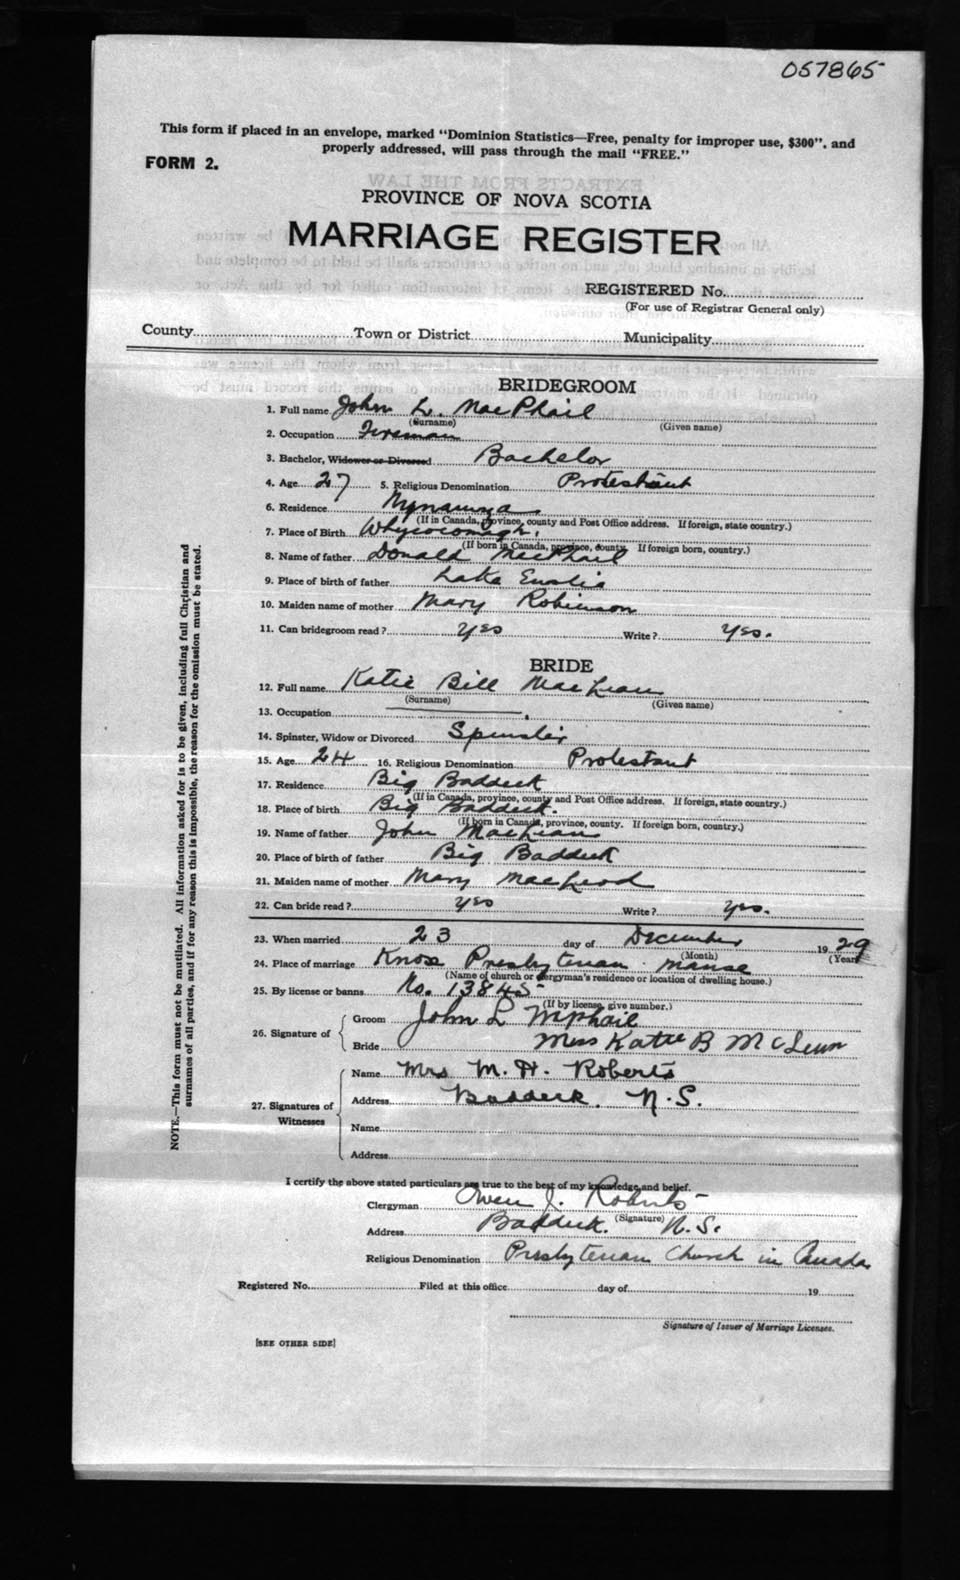 057865
This form if placed in an envelope, marked "Dominion Statistics—Free, penalty for improper use, $300", and
properly addressed, will pass through the mail "FREE."
FORM 2.
PROVINCE OF NOVA SCOTIA
MARRIAGE REGISTER
REGISTERED No.
(For use of Registrar General only)
County Town or District Municipality
BRIDEGROOM
1. Full name John L. MacPhail
(Surname) (Given name)
2. Occupation Fireman
3. Bachelor, Widower or Divorced Bachelor
4. Age 27 5. Religious Denomination Protestant
6. Residence
(If in Canada, province, county and Post Office address. If foreign, state country.)
7. Place of Birth Whycocomagh.
(If born in Canada, province, county. If foreign born, country.)
8. Name of father Donald MacPhail
9. Place of birth of father Lake
10. Maiden name of mother Mary Robinson
11. Can bridegroom read? yes Write? yes.
BRIDE
12. Full name Katie Bell MacLean
(Surname) (Given name)
13. Occupation
14. Spinster, Widow or Divorced Spinster
15. Age 24 16. Religious Denomination Protestant
17. Residence Big Baddeck
(If in Canada, province, county and Post Office address. If foreign, state country.)
18. Place of birth Big Baddeck.
(If born in Canada, province, county. If foreign born, country.)
19. Name of father John MacLean
20. Place of birth of father Big Baddeck
21. Maiden name of mother Mary MacLeod
22. Can bride read? yes Write? yes.
23. When married 23 day of December 1929
(Month) (Year)
24. Place of marriage Knox Presbyterian manse
(Name of church or clergyman's residence or location of dwelling house.)
25. By license or banns No. 13845
(If by license, give number.)
26. Signature of Groom John L McPhail
Bride Miss Katie B McLean
27. Signatures of Witnesses
Name Mrs M. H. Roberts
Address Baddeck. N.S.
Name
Address
I certify the above stated particulars are true to the best of my knowledge and belief.
Clergyman Owen J. Roberts
(Signature)
Address Baddeck. N.S.
Religious Denomination Presbyterian Church in Canada
Registered No. Filed at this office day of 19
Signature of Issuer of Marriage Licenses.
[SEE OTHER SIDE]
NOTE.—This form must not be mutilated. All information asked for is to be given, including full Christian and
surnames of all parties, and if for any reason this is impossible, the reason for the omission must be stated.